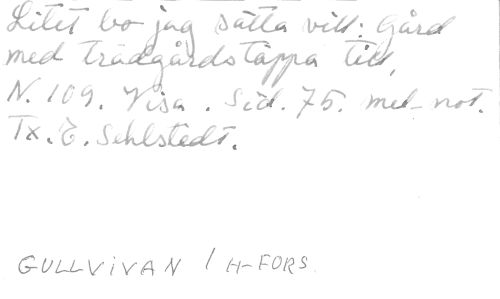 Litet bo jag sätta vill: Gård
med trädgårdstäppa till,
N. 109. Visa. Sid. 75. mel-not.
Tx. E. Sehlstedt.
GULLVIVAN / H-FORS.